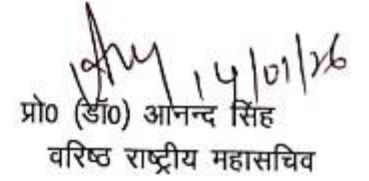 14/01/26
प्रो० (डॉ०) आनन्द सिंह
वरिष्ठ राष्ट्रीय महासचिव